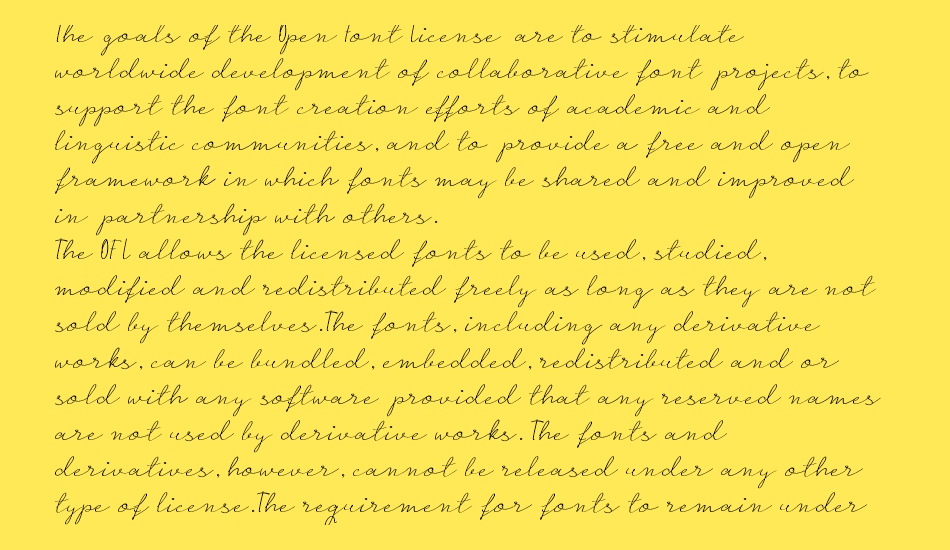 The goals of the Open Font License are to stimulate
worldwide development of collaborative font projects, to
support the font creation efforts of academic and
linguistic communities, and to provide a free and open
framework in which fonts may be shared and improved
in partnership with others.
The OFL allows the licensed fonts to be used, studied,
modified and redistributed freely as long as they are not
sold by themselves.The fonts, including any derivative
works, can be bundled, embedded, redistributed and or
sold with any software provided that any reserved names
are not used by derivative works. The fonts and
derivatives, however, cannot be released under any other
type of license.The requirement for fonts to remain under